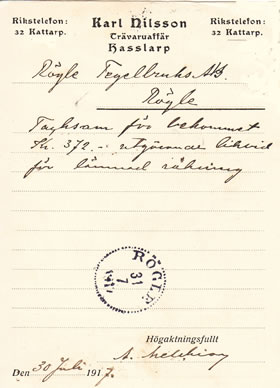 Rikstelefon: Karl Nilsson Rikstelefon:
32 Kattarp. Trävaruaffär 32 Kattarp.
Hasslarp
Rögle Tegelbruks A/B.
Rögle
Tacksam för bekommet
Kr. 372.- utgörande likvid
för lämnad räkning
RÖGLE
31
7
1917
Högaktningsfullt
A.
Den 30 Juli 1917.